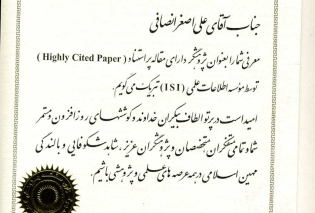 جناب آقای علی اصغر انصافی
معرفی شما را بعنوان پژوهشگر دارای مقاله پر استناد ( Highly Cited Paper )
توسط مؤسسه اطلاعات علمی (ISI) تبریک می گویم.
امید است در پرتو الطاف بیکران خداوند و کوششهای روزافزون و مستمر
شما و تمامی متفکران، متخصصان و پژوهشگران عزیز، شاهد شکوفایی و بالندگی
میهن اسلامی در همه عرصه های علمی و پژوهشی باشیم.